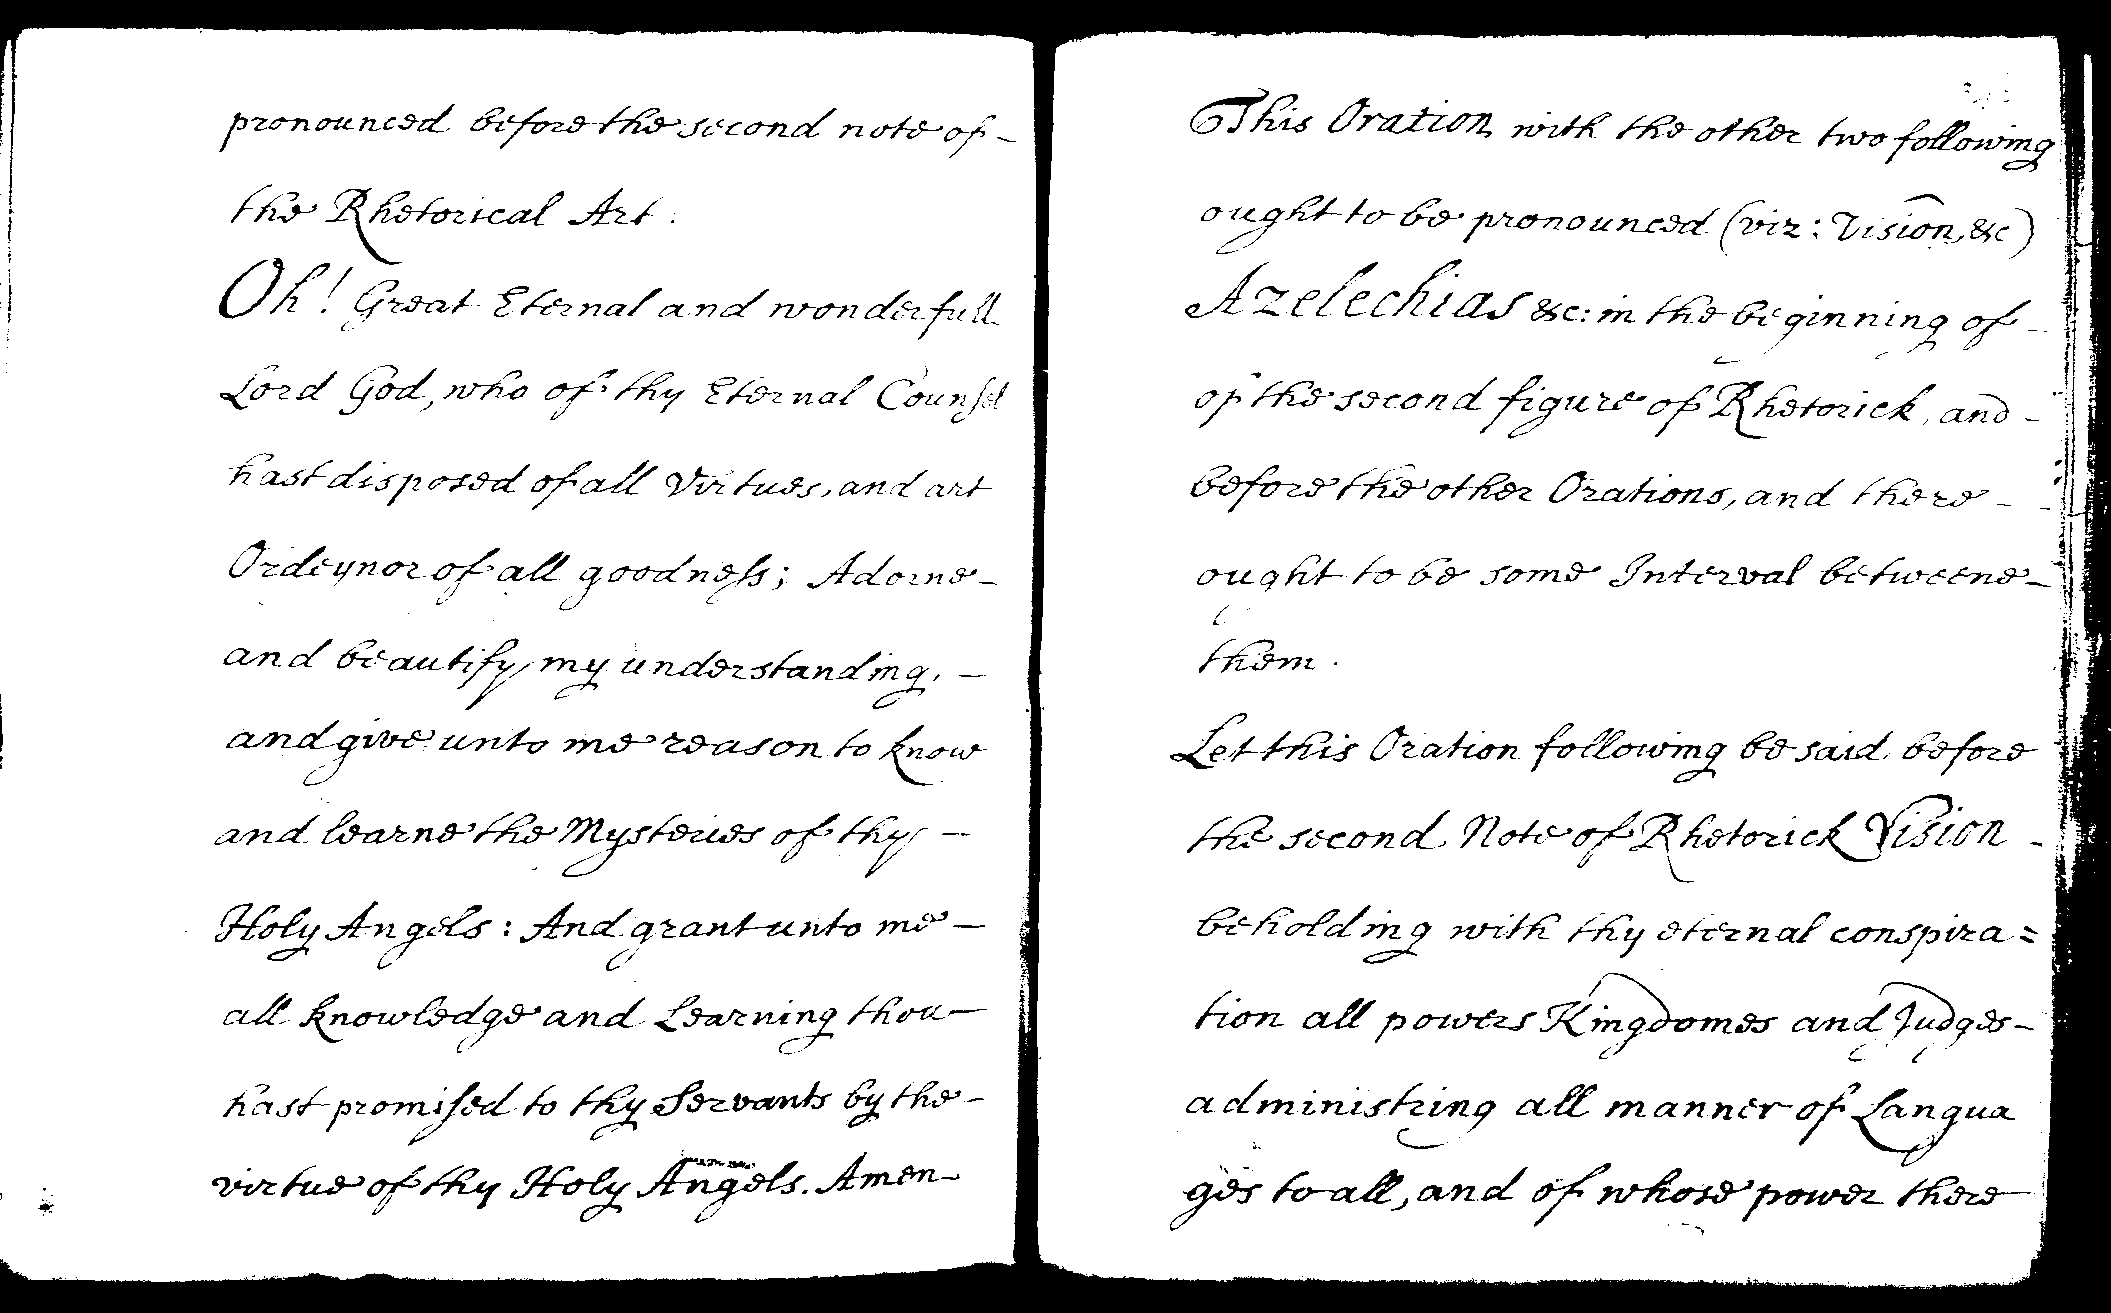 pronounced before the second note of -
the Rhetorical Art.
Oh! Great Eternal and wonderfull
Lord God, who of thy Eternal Counsel
hast disposed of all Virtues, and art
Ordeynor of all goodness; Adorne -
and beautify my understanding, -
and give unto me reason to know
and learne the Mysteries of thy -
Holy Angels: And grant unto me -
all knowledge and Learning thou -
hast promised to thy Servants by the -
virtue of thy Holy Angels. Amen -
This Oration with the other two following
ought to be pronounced (viz: Vision, &c)
Azelechias &c: in the beginning of -
of the second figure of Rhetorick, and -
before the other Orations, and there -
ought to be some Interval betweene -
them.
Let this Oration following be said before
the second Note of Rhetorick Vision -
beholding with thy eternal conspira=
tion all powers Kingdomes and Judges -
administring all manner of Langua
ges to all, and of whose power there